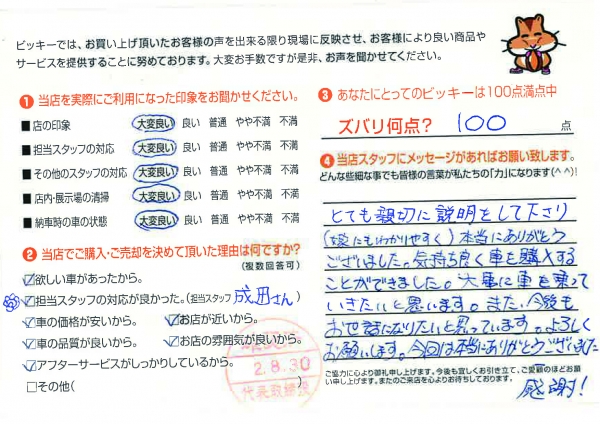 ビッキーでは、お買い上げ頂いたお客様の声を出来る限り現場に反映させ、お客様により良い商品や
サービスを提供することに努めております。大変お手数ですが是非、お声を聞かせてください。
1 当店を実際にご利用になった印象をお聞かせください。
■店の印象 大変良い 良い 普通 やや不満 不満
■担当スタッフの対応 大変良い 良い 普通 やや不満 不満
■その他のスタッフの対応 大変良い 良い 普通 やや不満 不満
■店内・展示場の清掃 大変良い 良い 普通 やや不満 不満
■納車時の車の状態 大変良い 良い 普通 やや不満 不満
2 当店でご購入・ご売却を決めて頂いた理由は何ですか?
(複数回答可)
☑欲しい車があったから。
☑担当スタッフの対応が良かった。(担当スタッフ 成田さん)
☑車の価格が安いから。 ☑お店が近いから。
☑車の品質が良いから。 ☑お店の雰囲気が良いから。
☑アフターサービスがしっかりしているから。
□その他( )
2.8.30
代表取締役
3 あなたにとってのビッキーは100点満点中
ズバリ何点? 100 点
4 当店スタッフにメッセージがあればお願い致します。
どんな些細な事でも皆様の言葉が私たちの「力」になります(^^)!
とても親切に説明をして下さり
(嫁にもわかりやすく)本当にありがとう
ございました。気持ち良く車を購入する
ことができました。大事に車を乗って
いきたいと思います。また、今後も
お世話になりたいと思っています。よろしく
お願いします。今回は本当にありがとうございました
ご協力に心より御礼申し上げます。今後も宜しくお引き立て、ご愛顧のほどお願
い申し上げます。またのご来店を心よりお待ちしております。
感謝!